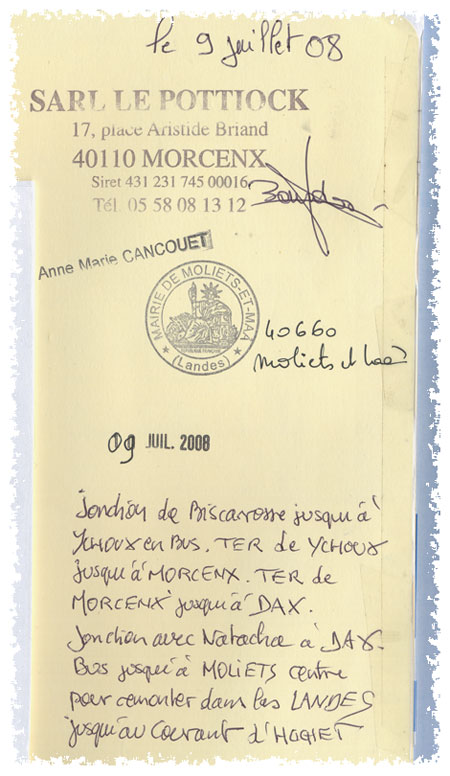 le 9 juillet 08
SARL LE POTTIOCK
17, place Aristide Briand
40110 MORCENX
Siret 431 231 745 00016
Tél. 05 58 08 13 12
Anne Marie CANCOUET
MAIRIE DE MOLIETS-ET-MAA
RÉPUBLIQUE FRANÇAISE
(Landes)
40660
Moliets et Maa
09 JUIL. 2008
Jonction de Biscarosse jusqu'à
YCHOUX en Bus. TER de YCHOUX
jusqu'à MORCENX. TER de
MORCENX jusqu'à DAX.
Jonction avec Natacha à DAX.
Bus jusqu'à MOLIETS centre
pour remonter dans les LANDES
jusqu'au Courant d'HUCHET